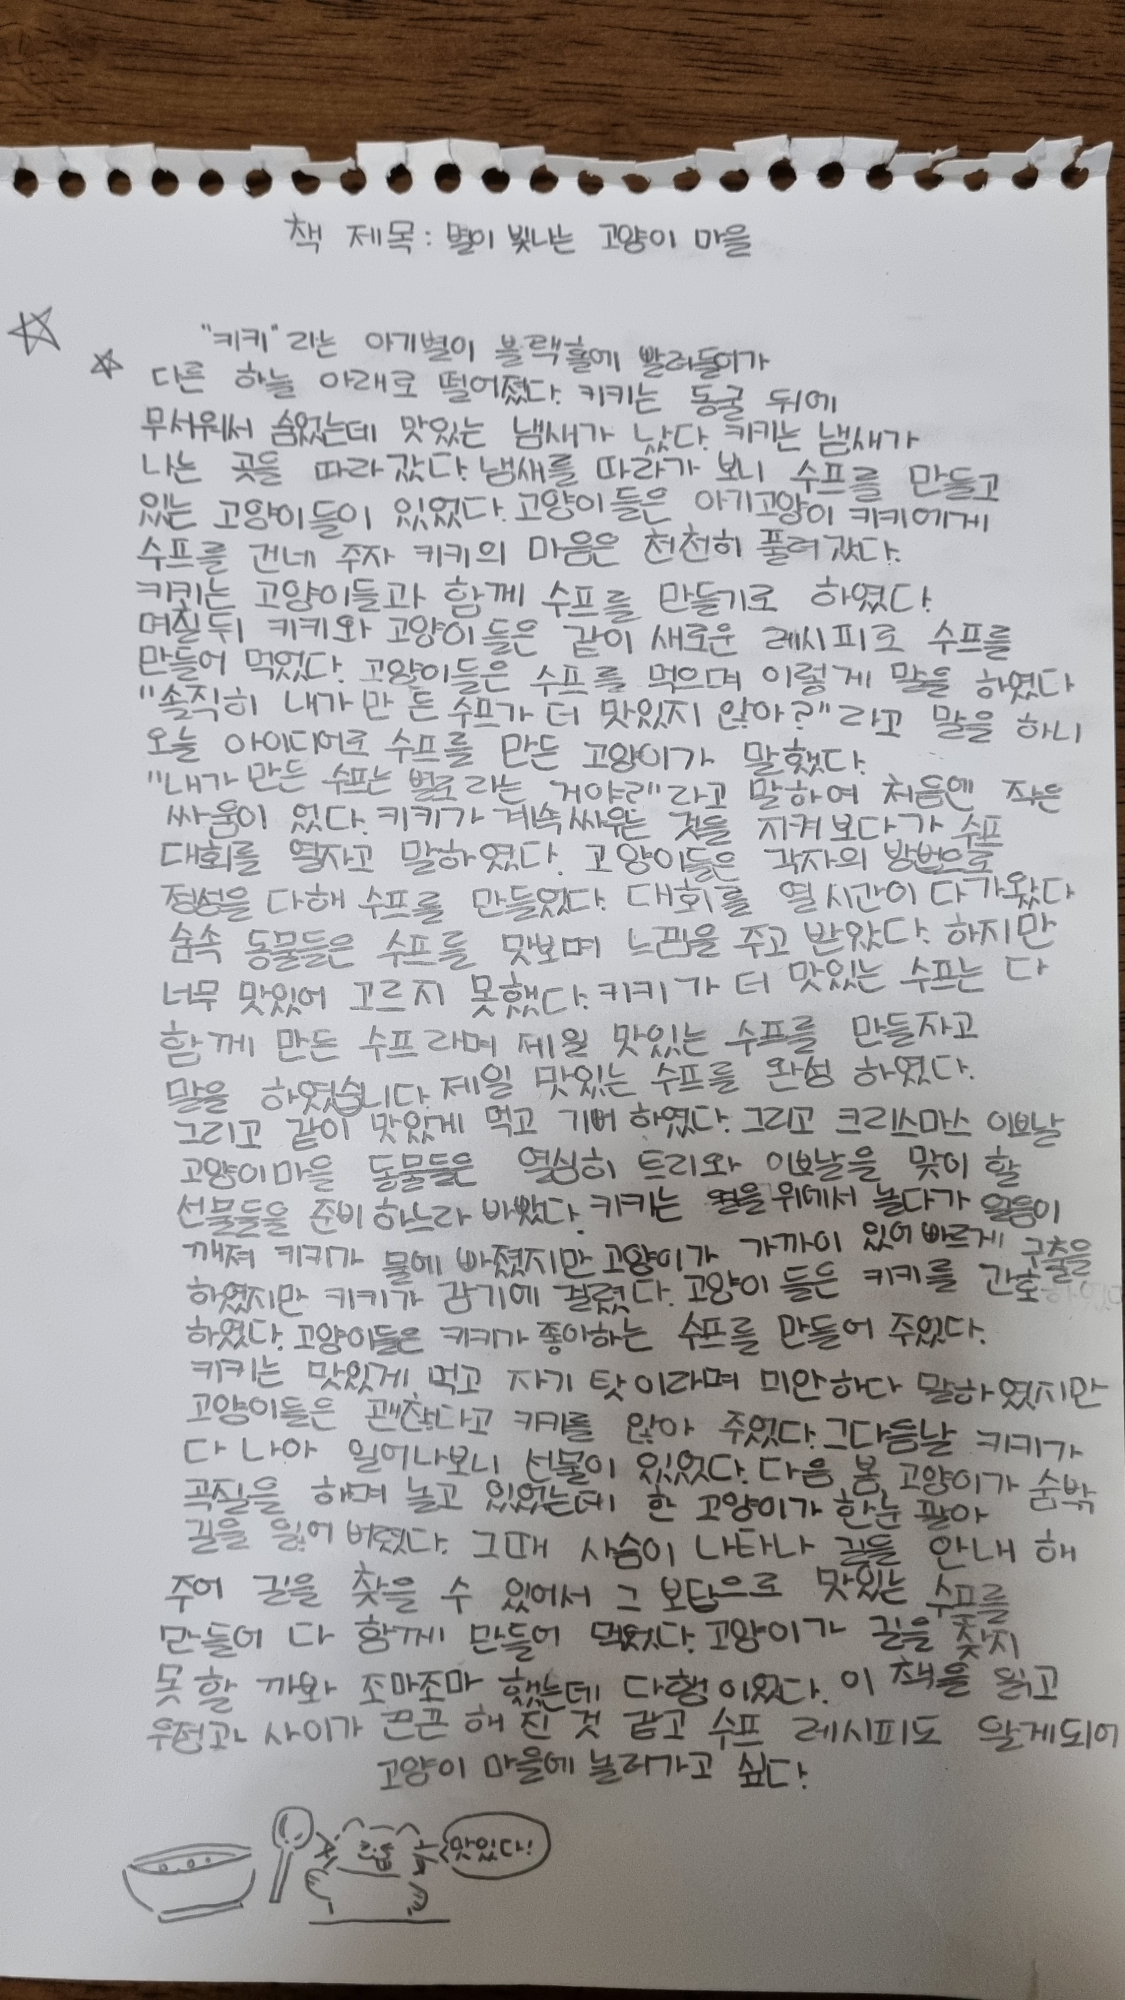 책 제목 : 별이 빛나는 고양이 마을
"키키"라는 아기별이 블랙홀에 빨려들어가
다른 하늘 아래로 떨어졌다. 키키는 동굴 뒤에
무서워서 숨었는데 맛있는 냄새가 났다. 키키는 냄새가
나는 곳을 따라갔다. 냄새를 따라가 보니 수프를 만들고
있는 고양이들이 있었다. 고양이들은 아기고양이 키키에게
수프를 건네 주자 키키의 마음은 천천히 풀려갔다.
키키는 고양이들과 함께 수프를 만들기로 하였다.
며칠뒤 키키와 고양이들은 같이 새로운 레시피로 수프를
만들어 먹었다. 고양이들은 수프를 먹으며 이렇게 말을 하였다
"솔직히 내가 만든 수프가 더 맛있지 않아?"라고 말을 하니
오늘 아이디어로 수프를 만든 고양이가 말했다.
"내가 만든 수프는 별로라는 거야?"라고 말하여 처음엔 작은
싸움이 있다. 키키가 계속싸우는 것을 지켜보다가 수프
대회를 열자고 말하였다. 고양이들은 각자의 방법으로
정성을 다해 수프를 만들었다. 대회를 열 시간이 다가왔다
숲속 동물들은 수프를 맛보며 느낌을 주고 받았다. 하지만
너무 맛있어 고르지 못했다. 키키가 더 맛있는 수프는 다
함께 만든 수프라며 제일 맛있는 수프를 만들자고
말을 하였습니다. 제일 맛있는 수프를 완성 하였다.
그리고 같이 맛있게 먹고 기뻐 하였다. 그리고 크리스마스 이브날
고양이마을 동물들은 열심히 트리와 이브날을 맞이 할
선물들을 준비하느라 바빴다. 키키는 얼음위에서 놀다가 얼음이
깨져 키키가 물에 빠졌지만 고양이가 가까이 있어 빠르게 구출을
하였지만 키키가 감기에 걸렸다. 고양이들은 키키를 간호
하였다. 고양이들은 키키가 좋아하는 수프를 만들어 주었다.
키키는 맛있게 먹고 자기 탓이라며 미안하다 말하였지만
고양이들은 괜찮다고 키키를 안아 주었다. 그다음날 키키가
다 나아 일어나보니 선물이 있었다. 다음 봄 고양이가 숨밖
곡질을 하며 놀고 있었는데 한 고양이가 한눈 팔아
길을 잃어 버렸다. 그때 사슴이 나타나 길을 안내 해
주어 길을 찾을 수 있어서 그 보답으로 맛있는 수프를
만들어 다 함께 만들어 먹었다. 고양이가 길을 찾지
못할 까봐 조마조마 했는데 다행이었다. 이 책을 읽고
우정과 사이가 끈끈 해 진 것 같고 수프 레시피도 알게되어
고양이 마을에 놀러가고 싶다.
맛있다!